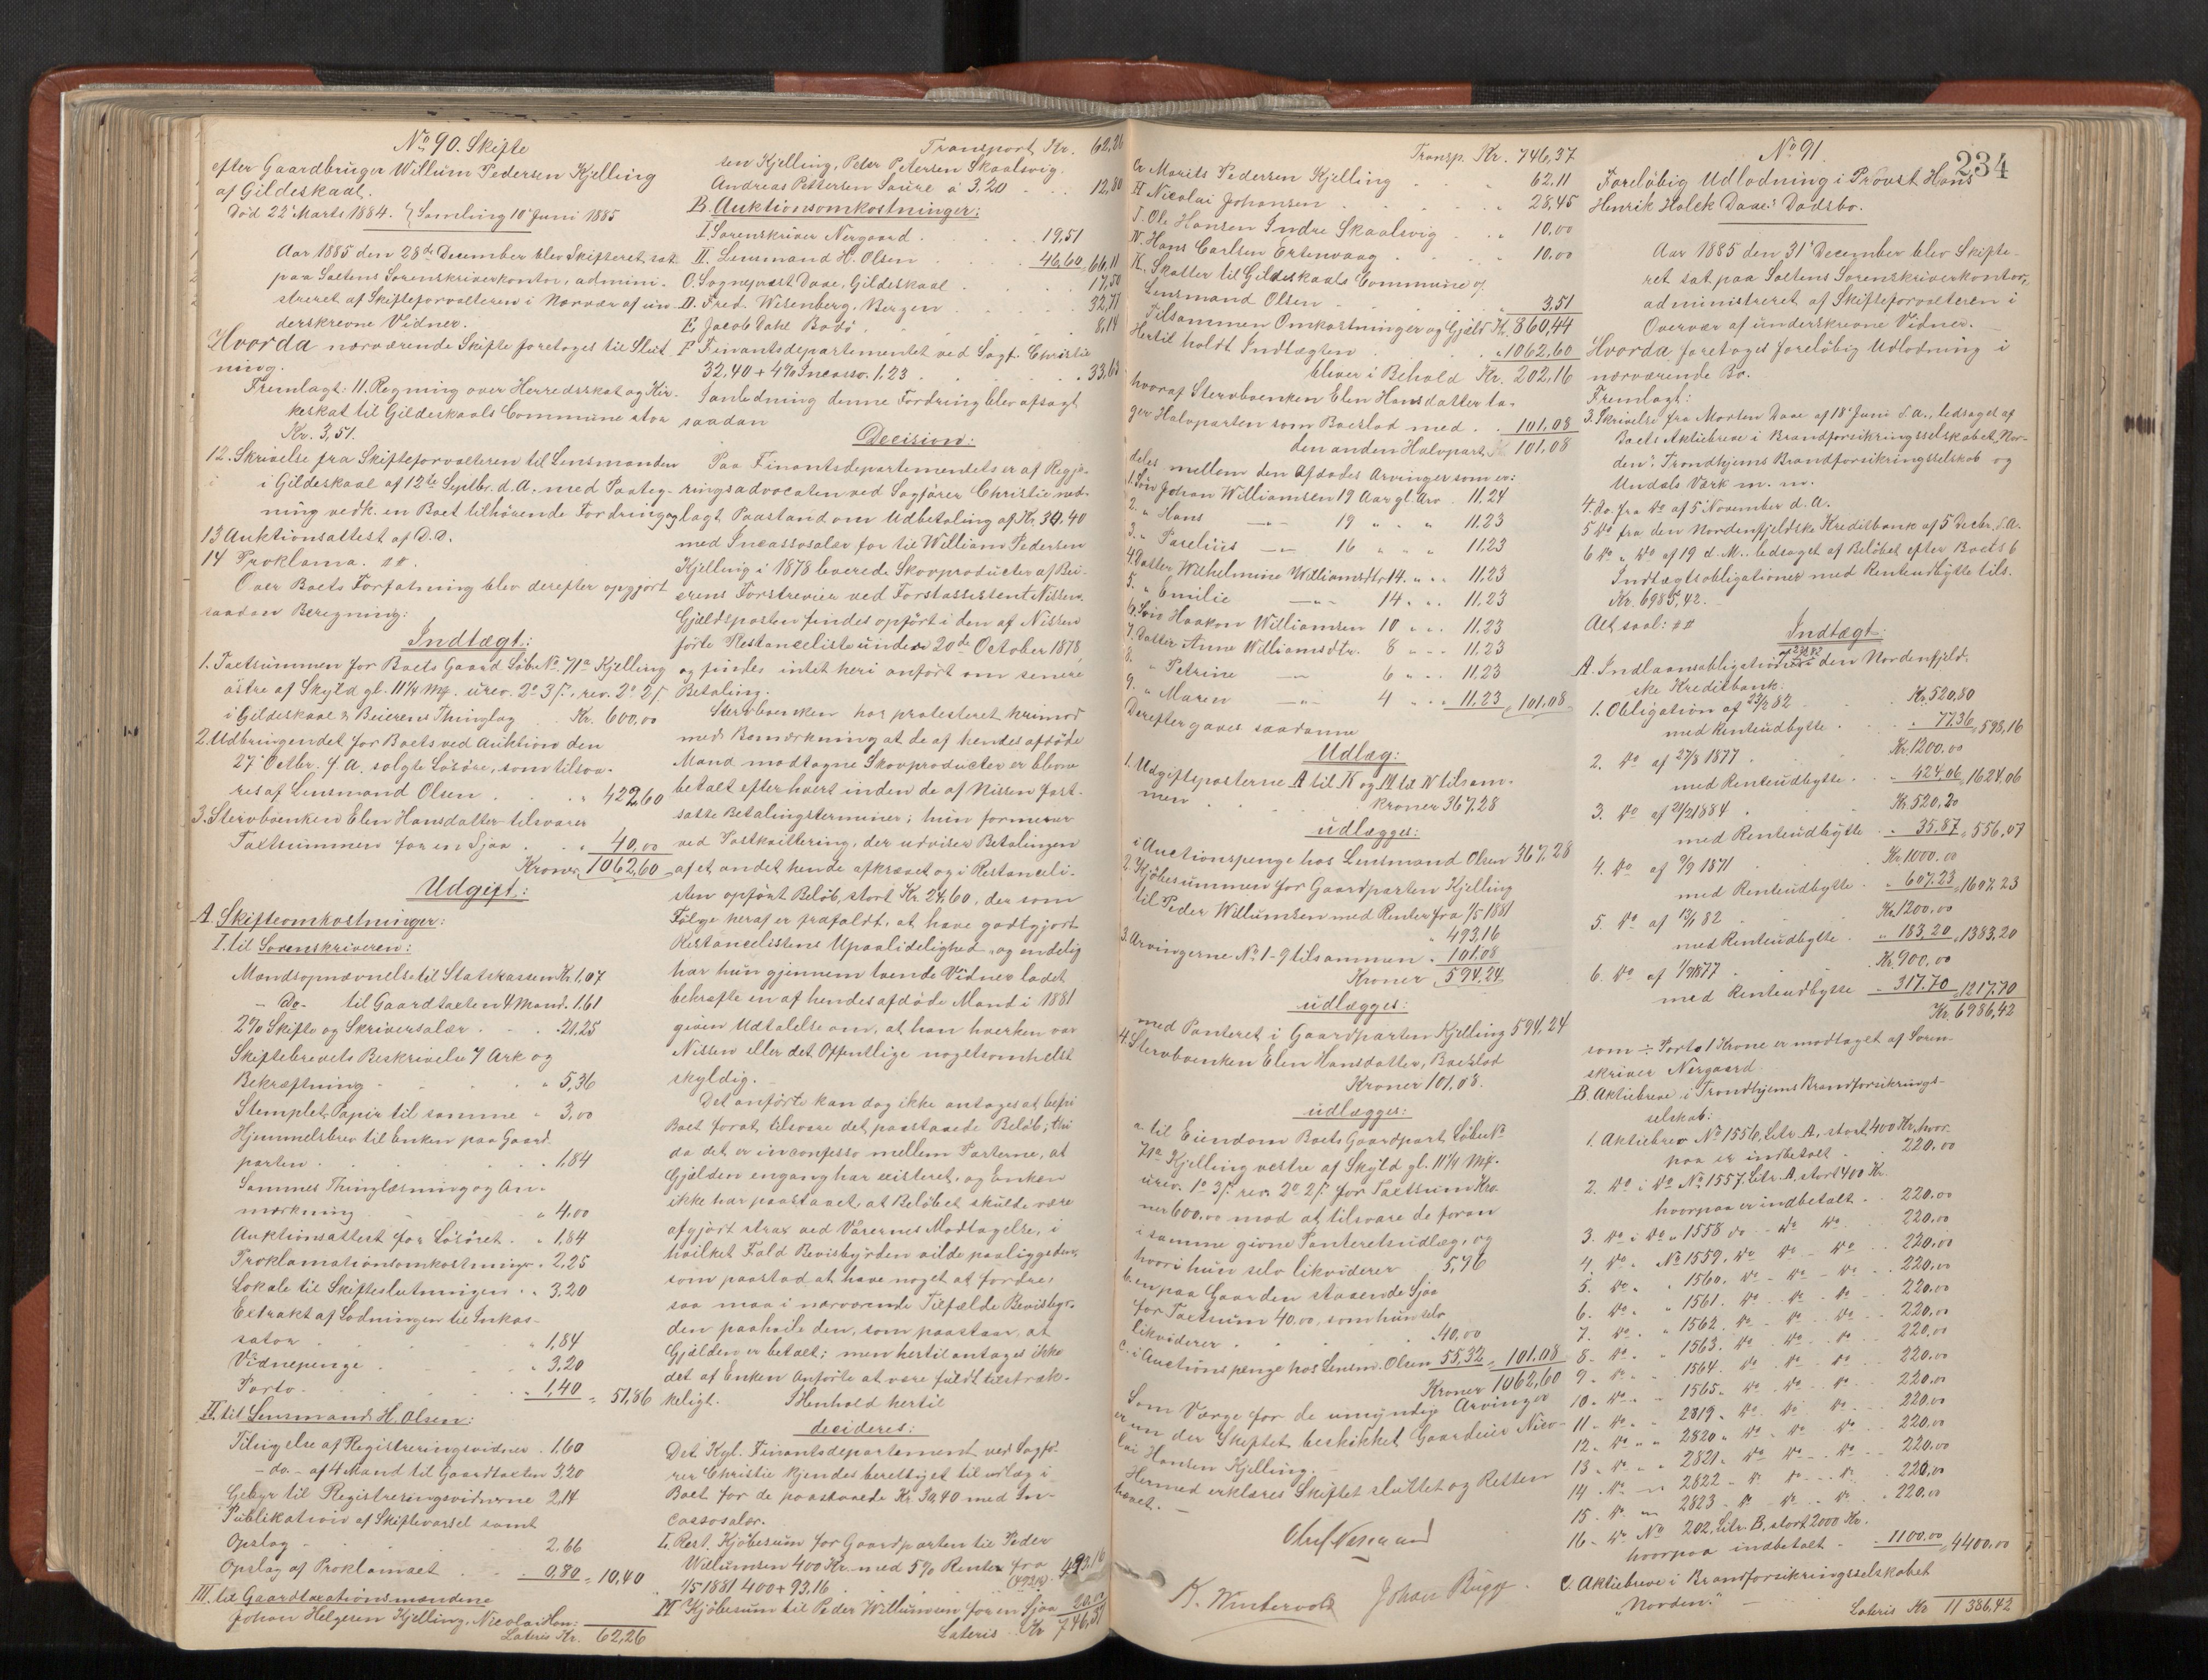 No 90. Skifte
efter Gaardbruger Willum Pedersen Kjelling
af Gildeskaal.
Død 22' Marts 1884. Samling 10' Juni 1885
Aar 1885 den 28de December blev Skifteret sat
paa Saltens Sorenskriverkontor, admini-
streret af Skifteforvalteren i Nærvær af un-
derskrevne Vidner.
Hvorda nærværende Skifte foretages til Slut-
ning.
Fremlagt: 11. Regning over Herredsskat og Kir-
keskat til Gildeskaals Commune stor
Kr. 3,51.
12. Skrivelse fra Skifteforvalteren til Lensmanden
i Gildeskaal af 12te Septbr. d. A. med Paateg-
ning vedk. en Boet tilhørende Fordring og
13 Auktionsattest af D.D.
14 Proklama.
Over Boets Forfatning blev derefter opgjort
saadan Beregning:
Indtægt:
1. Taxtsummen for Boets Gaard Løbe No. 71a Kjelling
østre af Skyld gl. 11 1/4 Mp. urev. 2o 3/., rev. 2o 2/.
i Gildeskaal & Beierens Thinglag . Kr. 600,00
2. Udbringendet for Boets ved Auktion den
27' Octbr. f. A. solgte Løsøre, som tilsva-
res af Lensmand Olsen . . " 422,60
3. Stervboenken Elen Hansdatter tilsvarer
Taxtsummen for en Sjaa . . " 40,00
Kroner 1062,60
Udgift:
A. Skifteomkostninger:
I. til Sorenskriveren:
Mandsopnævnelse til Statskassen Kr. 1,07
- do - til Gaardtaxten 4 Mand. 1,61
2% Skifte og Skriversalær . . 21,25
Skiftebrevets Beskrivelse 7 Ark og
Bekræftning - - - " 5,36
Stemplet Papir til samme " 3,00
Hjemmelsbrev til Enken paa Gaard-
parten . . . . 1,84
Sammes Thinglæsning og An-
mærkning . . . " 4,00
Auktionsattest for Løsøret . " 1,84
Proklamationsomkostninger . 2,25
Lokale til Skifteslutningen . " 3,20
Extrakt af Lodningen til Inkas-
sator . . . " 1,84
Vidnepenge . . . " 3,20
Porto . . . " 1,40 = 51,86
II. til Lensmand H. Olsen:
Tilsigelse af Registreringsvidner . 1,60
- do. - af 4 Mand til Gaardtaxten 3,20
Gebyr til Registreringsvidnerne 2,14
Publikation af Skiftevarsel samt
Opslag - - - 2,66
Opslag af Proklamaet . . 0,80 = 10,40
III. til Gaardtaxationsmændene
Johan Helgesen Kjelling, Nicolai Han-
Lateris Kr. 62,26
Transport Kr. 62,26
sen Kjelling, Peter Petersen Skaalsvig.
Andreas Pettersen Saure á 3,20 . . . 12,80
B. Auktionsomkostninger:
I. Sorenskriver Nergaard . . . 19,51
II. Lensmand H. Olsen . . . 46,60 66,11
C. Sogneprest Daae, Gildeskaal . . . 17,50
D. Fred. Wisenberg, Bergen . . . 32,71
E. Jacob Dahl Bodø . . . 8,14
F. Finantsdepartementet ved Sagf. Christie
32,40 + 4% Incasso. 1,23 . . . 33,63
I anledning denne Fordring blev afsagt
saadan
Decision:
Paa Finantsdepartementets er af Regje-
ringsadvocaten ved Sagfører Christie ned-
lagt Paastand om Udbetaling af Kr. 30.40
med Incassosalær for til William Pedersen
Kjelling i 1878 leverede Skovproducter af Bei-
erens Forstrevier ved Forstassistent Nissen.
Gjældsposten findes opført i den af Nissen
førte Restanceliste under 20de October 1878,
og findes intet heri anført om senere
Betaling.
Stervboenken har protesteret herimod
med Bemærkning at de af hendes afdøde
Mand modtagne Skovproducter er bleven
betalt efterhvert inden de af Nissen fast-
satte Betalingsterminer; hun formener
ved Postkvittering, der udviser Betalingen
af et andet hende afkrævet og i Restanceli-
sten opført Beløb, stort Kr. 24,60, der som
Følge heraf er frafaldt, at have godtgjort
Restancelistens Upaalidelighed og endelig
har hun gjennem tvende Vidner ladet
bekræfte en af hendes afdøde Mand i 1881
given Udtalelse om, at han hverken var
Nissen eller det Offentlige nogetsomhelst
skyldig. -
Det anførte kan dog ikke antages at befri
Boet forat tilsvare det paastaaede Beløb; thi
da det er in confesso mellem Parterne, at
Gjælden engang har existeret, og Enken
ikke har paastaaet, at Beløbet skulde være
afgjort strax ved Varernes Modtagelse, i
hvilket Fald Bevisbyrden vilde paaligge den,
som paastod at have noget at fordre,
saa maa i nærværende Tilfælde Bevisbyr-
den paahvile den, som paastaar, at
Gjælden er betalt; men hertil antages ikke
det af Enken Anførte at være fuldt tilstræk-
keligt. I Henhold hertil
decideres:
Det Kgl. Finantsdepartement ved Sagfø-
rer Christie kjendes berettiget til udlæg i
Boet for de paastaaede Kr. 30,40 med In-
cassosalær.
L. Rest. Kjøbesum for Gaardparten til Peder
Willumsen 400 Kr. med 5% Renter fra
1/5 1881 400 + 93,16 . . . 493,16
M Kjøbesum til Peder Willumsen for en Sjaa 20,00
Lateris Kr 746,37
Transp. Kr. 746,37
G. Marits Pedersen Kjelling . . " 62,11
H Nicolai Johansen . . . " 28,45
I. Ole Hansen Indre Skaalsvig . " 10,00
IV. Hans Carlsen Ertenvaag . . " 10,00
K. Skatter til Gildeskaals Commune v/
Lensmand Olsen . . . " 3,51
Tilsammen Omkostninger og Gjæld Kr. 860,44
Hertil holdt Indtægten . . " 1062,60
bliver i Behold Kr. 202,16
hvoraf Stervboenken Elen Hansdatter ta-
ger Halvparten som Boeslod med . " 101,08
den anden Halvpart 101,08
deles mellem den Afdødes Arvinger som er:
1. Søn Johan Williamsen 19 Aar gl. Arv . 11,24
2. " Hans - " - 19 " " " 11,23
3. " Parelius - " - 16 " " " 11,23
4. Datter Wilhelmine Williamsdtr 14. " . . 11,23
5. " Emilie - " - 14 " . . 11,23
6. Søn Haakon Williamsen 10 " . . 11,23
7. Datter Anne Williamsdtr. 8 " - . 11,23
8. " Petrine - " - 6 " . . 11,23
9. " Maren - " - 4 " . . 11,23 = 101,08
Derefter gaves saadanne
Udlæg:
1. Udgiftsposterne A til K og M til N tilsam-
men . . . Kroner 367,28
udlægges:
i Auctionspenge hos Lensmand Olsen 367,28
2. Kjøbesummen for Gaardparten Kjelling
til Peder Willumsen med Renter fra 1/5 1881
" 493,16
3. Arvingerne No. 1-9 tilsammen " 101,08
Kroner 594,24
udlægges:
med Panteret i Gaardparten Kjelling 594,24
4. Stervboenken Elen Hansdatter, Boeslod
Kroner 101,08.
udlægges:
a til Eiendom Boets Gaardpart Løbe No
71a Kjelling vestre af Skyld gl. 11 1/4 Mp.
urev. 1o 3/. rev. 2o 2/. for Taxtsum Kro-
ner 600,00 mod at tilsvare de foran
i samme givne Panteretsudlæg, og
hvori hun selv likviderer 5,76
b. en paa Gaarden staaende Sjaa
for Taxtsum 40,00, som hun selv
likviderer . . . 40,00
c. i Auctionspenge hos Lensm. Olsen 55,32 = 101,08
Kroner 1062,60
Som Værge for de umyndige Arvinger
er under Skiftet beskikket Gaardeier Nico-
lai Hansen Kjelling. -
Hermed erklæres Skiftet sluttet og Retten
hævet. -
Oluf Nergaard
K. Wintervold Johan Bugge.
234
No 91.
Foreløbig Udlodning i Provst Hans
Henrik Holck Daae's Dødsbo.
Aar 1885 den 31' December blev Skifte-
ret sat paa Saltens Sorenskriverkontor,
administreret af Skifteforvalteren i
Overvær af underskrevne Vidner.
Hvorda foretages foreløbig Udlodning i
nærværende Bo.
Fremlagt:
3. Skrivelse fra Morten Daae af 18' Juni d. A., ledsaget af
Boets Aktiebreve i Brandforsikringsselskabet "Nor-
den", Trondhjems Brandforsikringsselskab og
Undals Værk m. m.
4. do. fra do af 5' November d. A.
5 do fra den Nordenfjeldske Kreditbank af 5 Decbr. d. A.
6 do " do af 19 d. M., ledsaget af Beløbet efter Boets 6
Indtægtsobligationer med Renteudbytte tils.
Kr. 6985,42.
Alt saal:
Indtægt:
A. Indlaansobligationer i den Nordenfjeld-
ske Kreditbank:
1. Obligation af 23/2 82 . . Kr. 520,80
med Renteudbytte . . " 77,36 " 598,16
2. do af 27/8 1877 . . Kr. 1200,00
med Renteudbytte . . " 424,06 " 1624,06
3. do af 21/2 1884 . Kr. 520,20
med Renteudbytte . . " 35,87 " 556,07
4. do af 9/9 1871 . Kr. 1000,00
med Renteudbytte . . " 607,23 " 1607,23
5. do af 13/1 82 . Kr. 1200,00
med Renteudbytte . . " 183,20 " 1383,20
6. do af 1/9 1877 . Kr. 900,00
med Renteudbytte . " 317.70 " 1217,70
Kr. 6986,42
som ÷ Porto 1 Krone er modtaget af Soren-
skriver Nergaard
B. Aktiebreve i Trondhjems Brandforsikrings-
selskab:
1. Aktiebrev No 1556, Litr. A, stort 400 Kr, hvor-
paa er indbetalt . . 220,00
2. do i do No. 1557 Litr. A, stort 400 Kr.
hvorpaa er indbetalt . . 220,00
3. do i do " 1558 do - do do . . 220,00
4. do " No 1559, do do - do . . 220,00
5. do " " 1560. do - do - do . . 220,00
6. do " " 1561. do - do - do . . 220,00
7. do " " 1562. do - do - do . . 220,00
8. do " " 1563. do - do - do . . 220,00
9. do " " 1564. do - do - do . . 220,00
10. do " " 1565. do - do - do . . 220,00
11. do " " 2819. do - do - do . . 220,00
12. do " " 2820 " do - do - do . . 220,00
13. do " " 2821. do - do - do . . 220,00
14. do " " 2822 - do - do - do . . 220,00
15. do " " 2823 - do - do - do . . 220,00
16. do No 202, Litr. B, stort 2000 Kr.
hvorpaa indbetalt . . 1100,00 " 4400,00
C. Aktiebreve i Brandforsikringsselskabet
"Norden". - Lateris Kr 11386,42